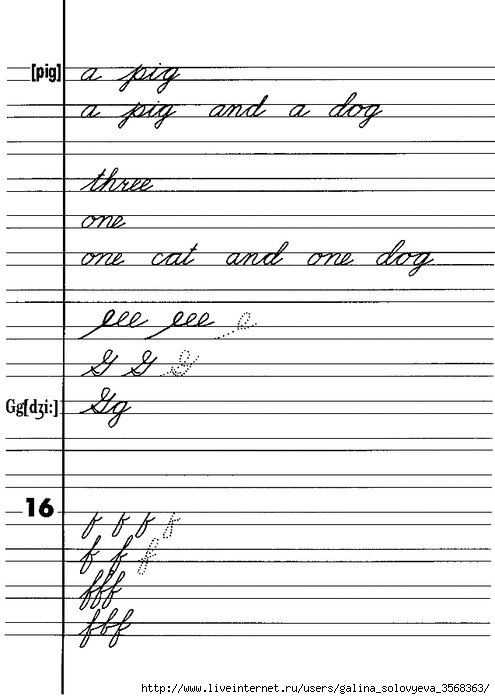 [pig] a pig
a pig and a dog
three
one
one cat and one dog
eee eee e
G G G
Gg[dʒi:] Gg
16
f f f f
f f f
fff
fbf
http://www.liveinternet.ru/users/galina_solovyeva_3568363/